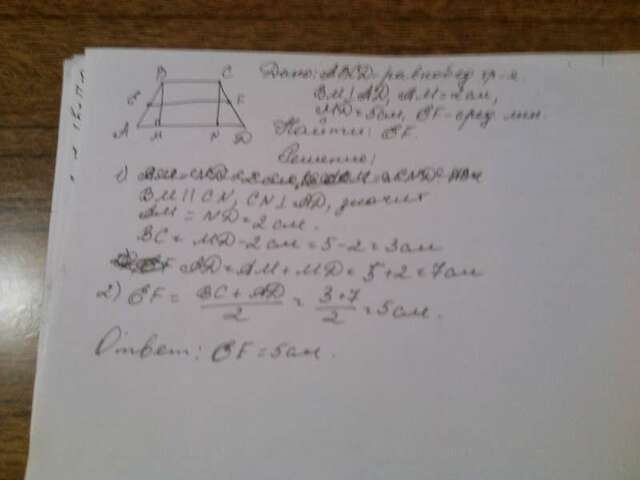 B C
E F
A M N D
Дано: ABCD-равнобед. тр-я.
BM⊥AD, AM=2см,
MD=5см, EF-сред. лин.
Найти: EF.
Решение:
1)
BM || CN, CN⊥AD, значит
AM = ND=2см.
BC = MD-2см=5-2=3см
AD=AM+MD=5+2=7см
2) EF = BC+AD/2 = 3+7/2 =5см.
Ответ: EF=5см.